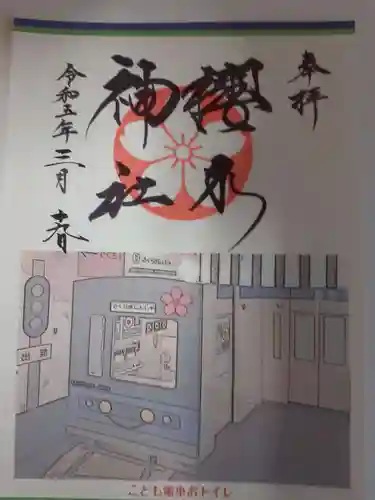 奉拝
櫻木
神社
令和五年三月 春
出発
こども電車おトイレ